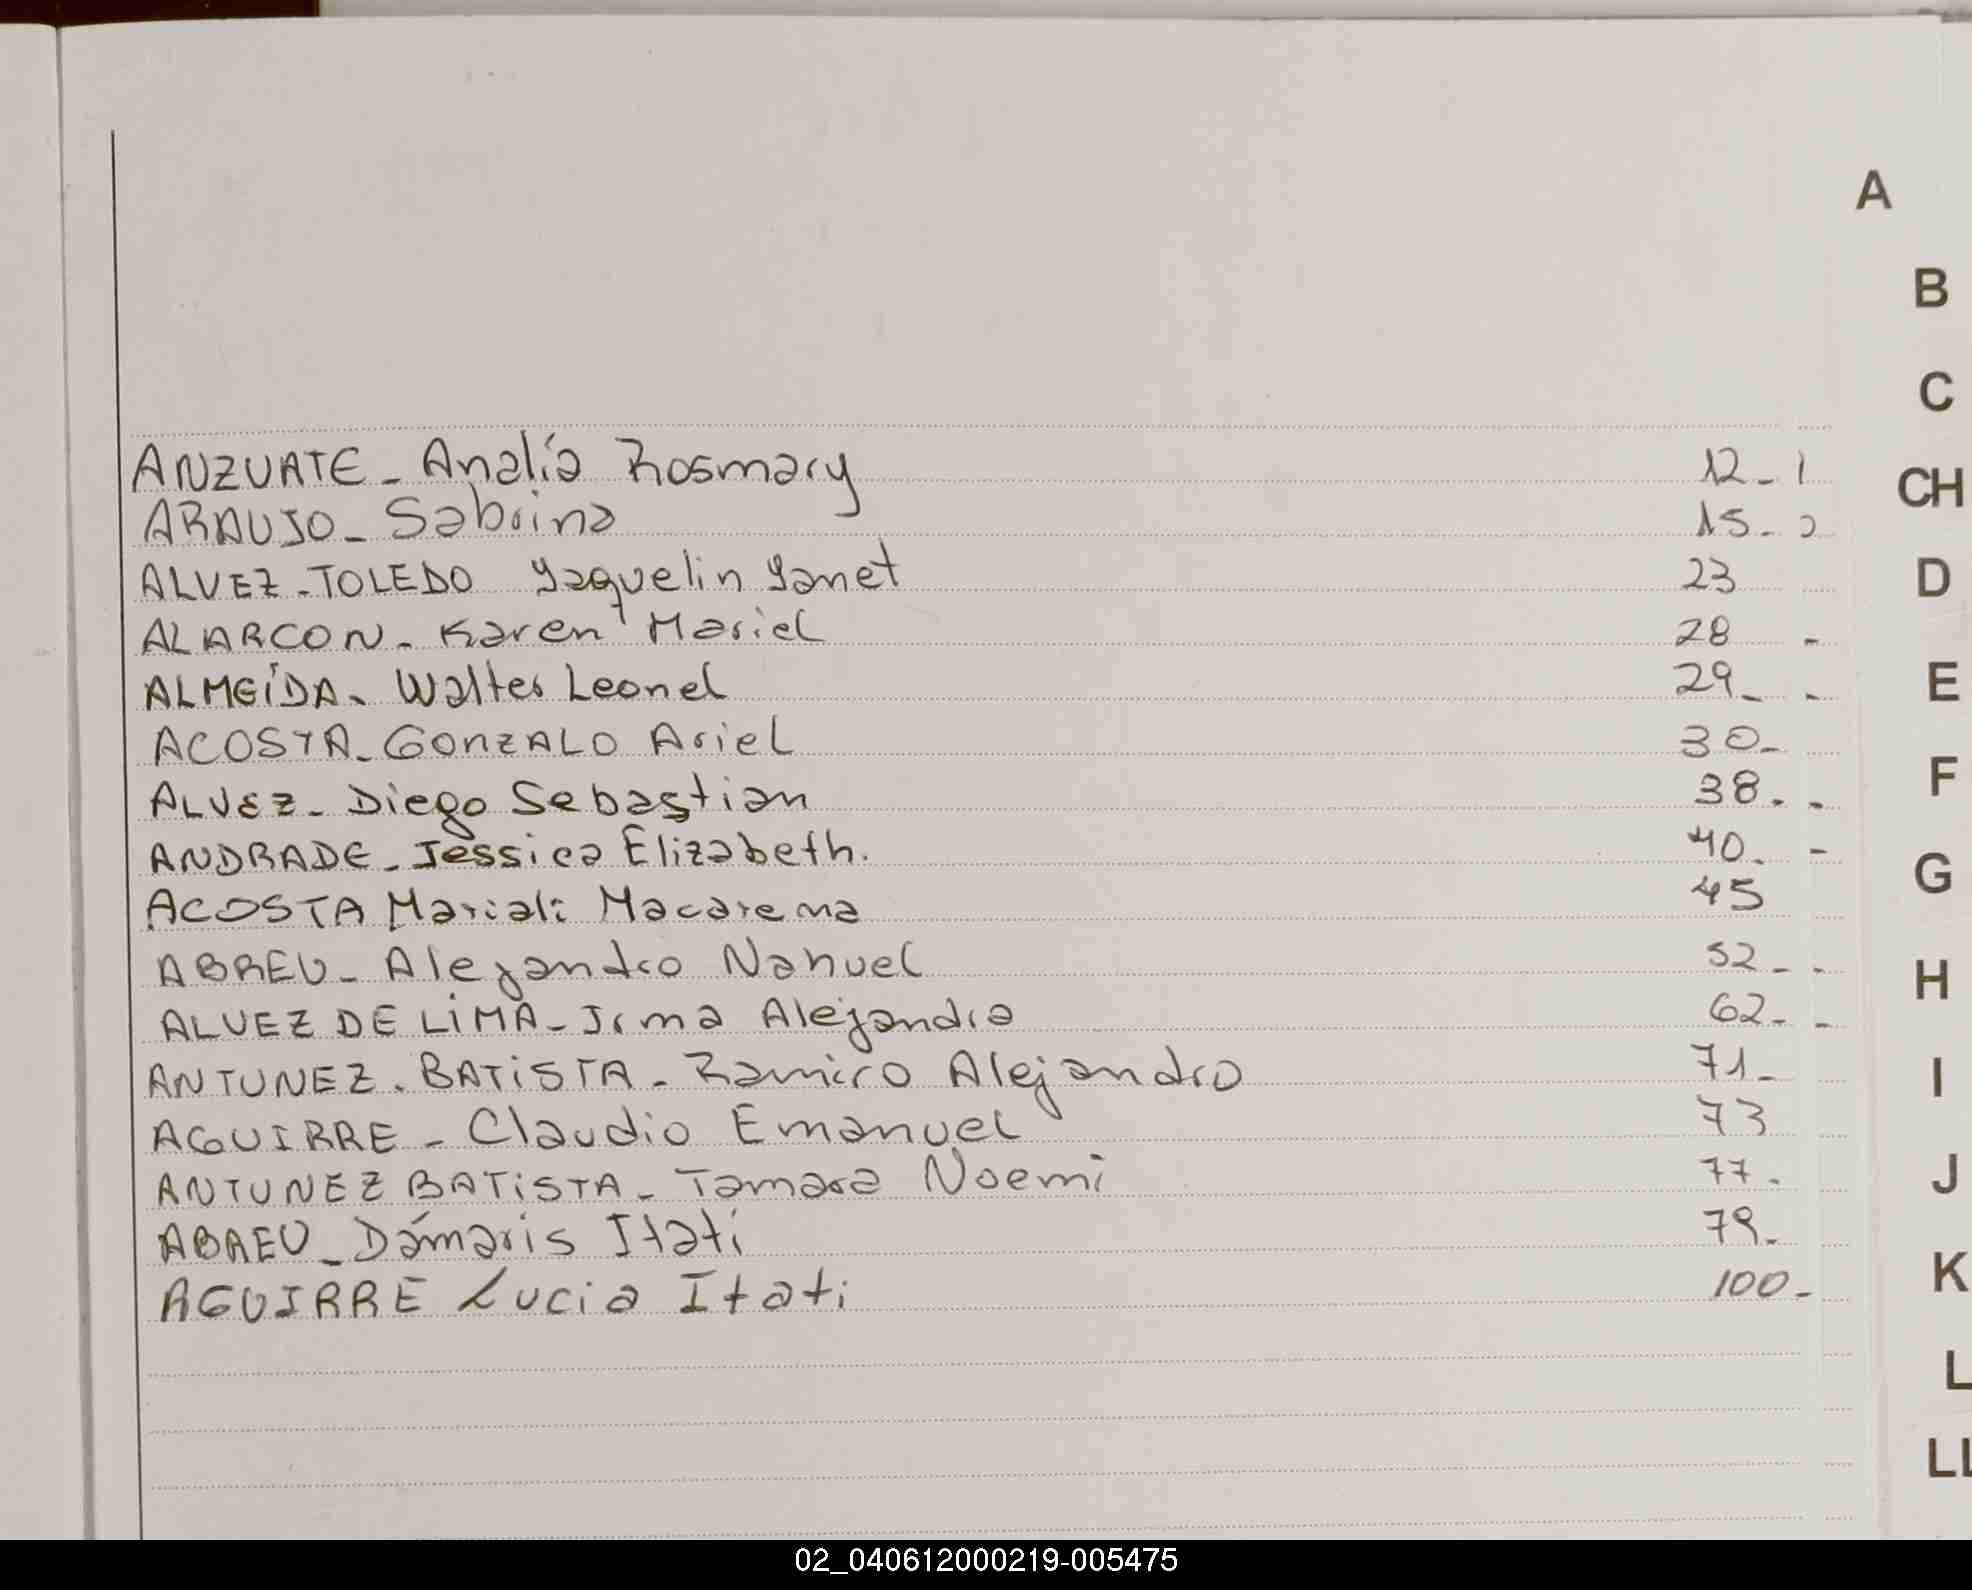 A
B
C
ANZUATE - Analía Rosmary 12 - 1
CH
ARAUJO - Sabrina 15 - 2
ALVEZ - TOLEDO Yaquelin Yanet 23
D
ALARCON - Karen Mariel 28 -
ALMEÍDA - Walter Leonel 29 - -
E
ACOSTA - GONZALO Ariel 30 -
F
ALVEZ - Diego Sebastian 38 - -
ANDRADE - Jessica Elizabeth. 40 - -
G
ACOSTA Mariali Macarena 45
ABREU - Alejandro Nahuel 52 - -
H
ALVEZ DE LIMA - Irma Alejandra 62 - -
ANTUNEZ - BATISTA - Ramiro Alejandro 71 -
I
AGUIRRE - Claudio Emanuel 73
ANTUNEZ BATISTA - Tamara Noemi 77 -
J
ABREU - Dámaris Itati 79 -
K
AGUIRRE Lucia Itati 100 -
L
LL
02_040612000219-005475